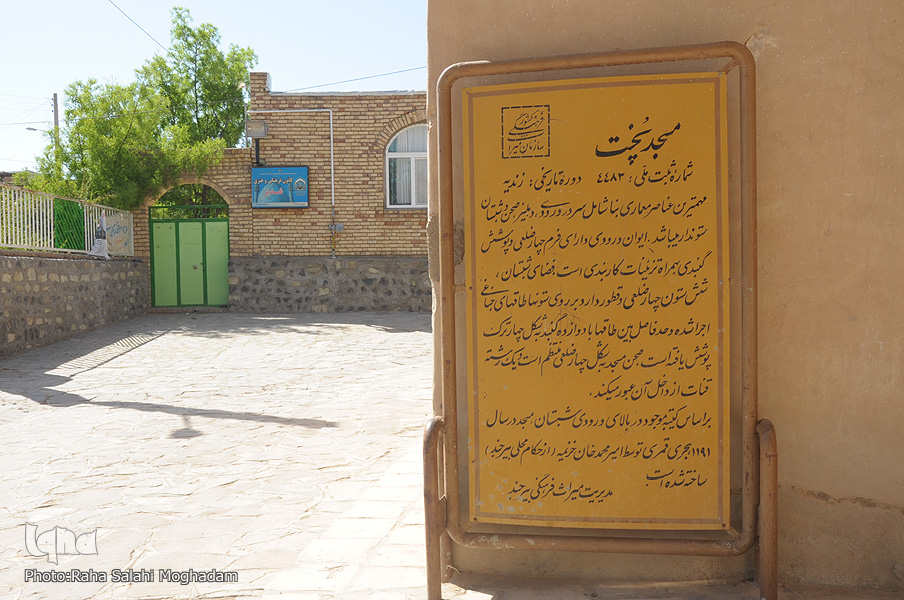 سازمان میراث
فرهنگی کشور
مسجد نخت
شماره ثبت ملی: ۴۴۸۳ دوره تاریخی: زندیه
مهمترین عناصر معماری بنا شامل سردر ورودی، دهلیز، صحن و شبستان
ستوندار میباشد. ایوان ورودی دارای فرم چهارضلعی و پوشش
گنبدی بهمراه تزئینات کاربندی است. فضای شبستان،
شش ستون چهارضلعی و قطور دارد بر روی ستونها طاقهای جناغی
اجرا شده و حد فاصل بین طاقها با دوازده گنبد بشکل چهارترک
پوشش یافته است. صحن مسجد به شکل چهارضلعی منتظم است و یک رشته
قنات از داخل آن عبور میکند.
براساس کتیبه موجود در بالای ورودی شبستان، مسجد در سال
۱۱۹۱ هجری قمری توسط امیر محمد خان خزیمه (از حکام محلی بیرجند)
ساخته شده است
مدیریت میراث فرهنگی بیرجند
کانون فرهنگی و هنری
iqna
Photo:Raha Salahi Moghadam